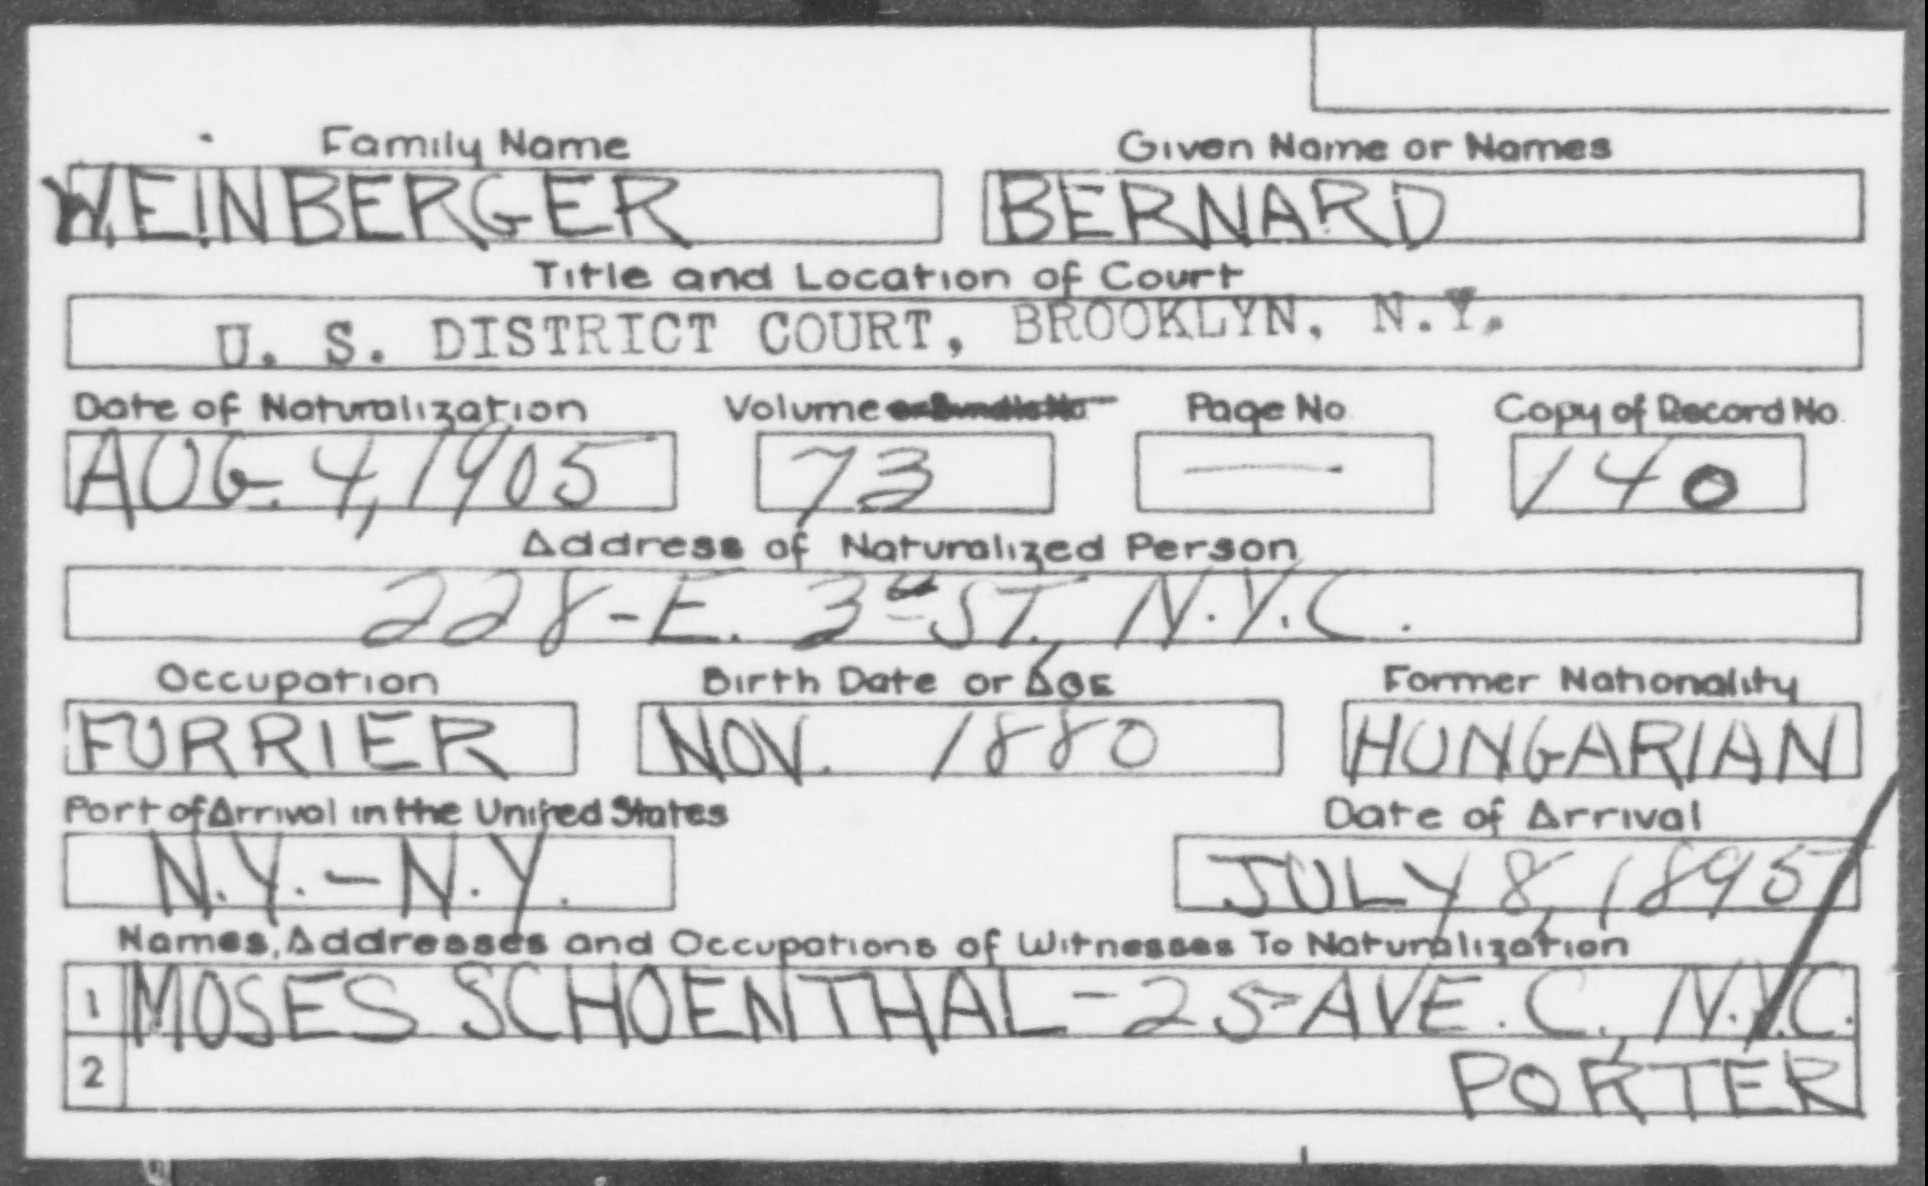 Family Name Given Name or Names
WEINBERGER BERNARD
Title and Location of Court
U. S. DISTRICT COURT, BROOKLYN, N.Y.
Date of Naturalization Volume or Bundle No Page No. Copy of Record No.
AUG. 4, 1905 73 — 140
Address of Naturalized Person
228-E. 3rd ST., N.Y.C.
Occupation Birth Date or Age Former Nationality
FURRIER NOV. 1880 HUNGARIAN
Port of Arrival in the United States Date of Arrival
N.Y. - N.Y. JULY 8, 1895
Names, Addresses and Occupations of Witnesses To Naturalization
1 MOSES SCHOENTHAL - 25 AVE. C., N.Y.C.
2 PORTER